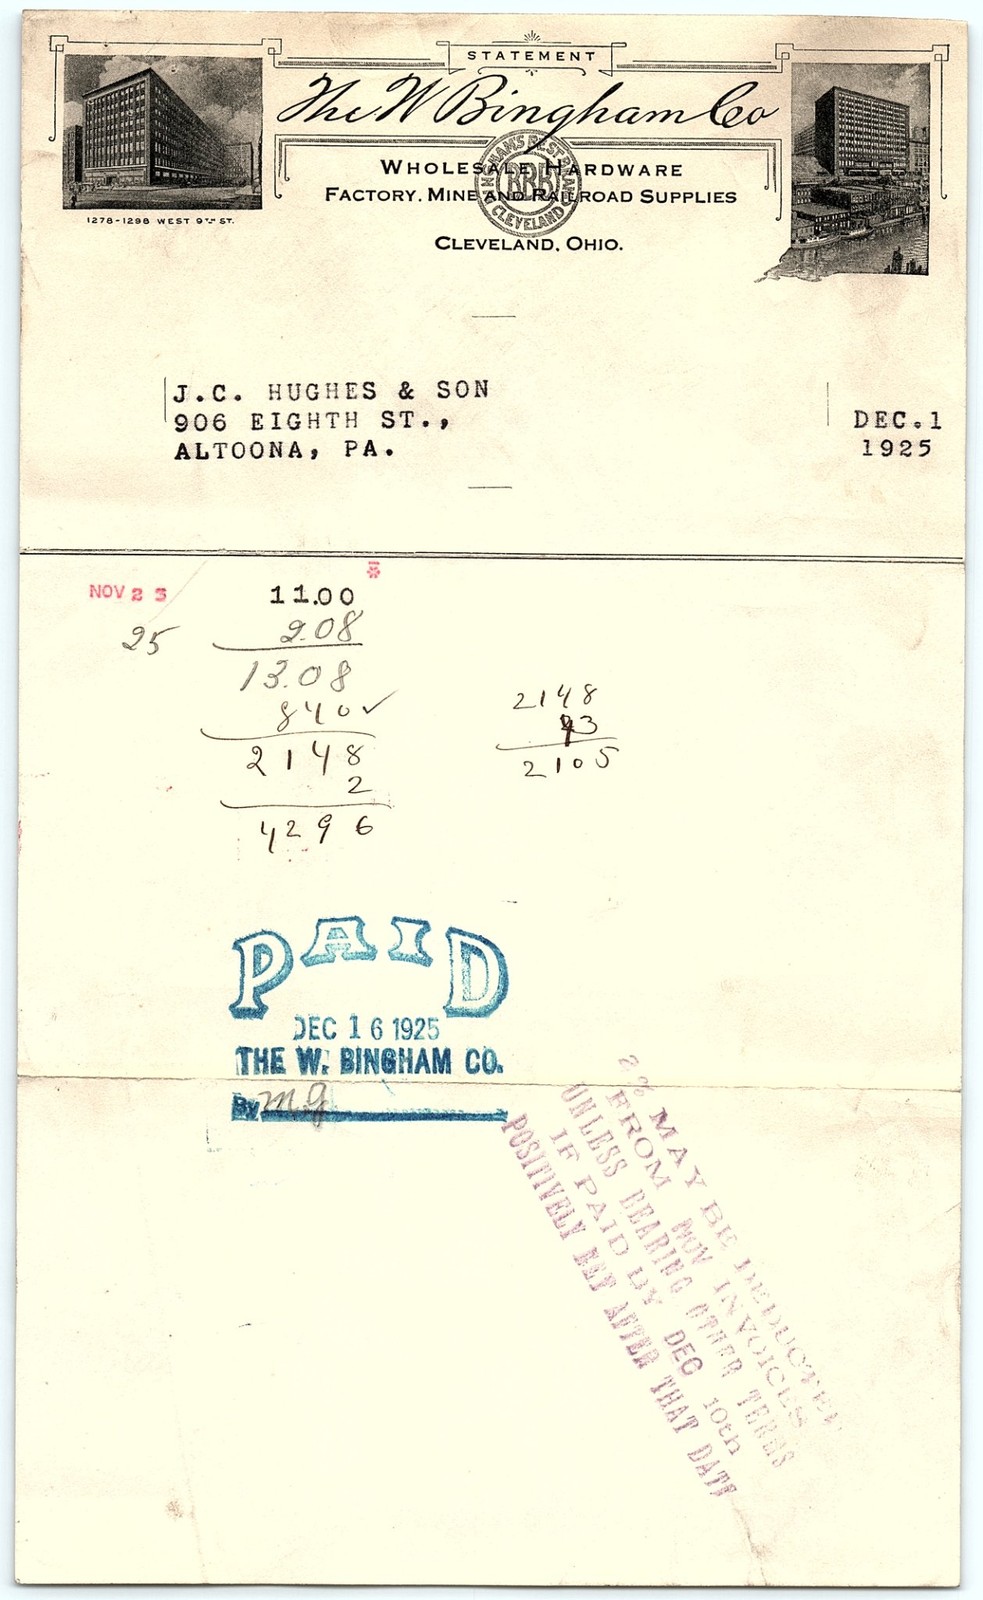 STATEMENT
The W Bingham Co
WHOLESALE HARDWARE
FACTORY. MINE AND RAILROAD SUPPLIES
BINGHAM'S BEST BRAND
BBB
CLEVELAND
CLEVELAND, OHIO.
1278-1298 WEST 9TH ST.
J.C. HUGHES & SON
906 EIGHTH ST.,
ALTOONA, PA.
DEC.1
1925
NOV 23 11.00
25 2.08
13.08
840✓
2148
2
4296
2148
43
2105
PAID
DEC 16 1925
THE W. BINGHAM CO.
By M.G.
2% MAY BE DEDUCTED
FROM NOV INVOICES
UNLESS BEARING OTHER TERMS
IF PAID BY DEC 10th
POSITIVELY NET AFTER THAT DATE